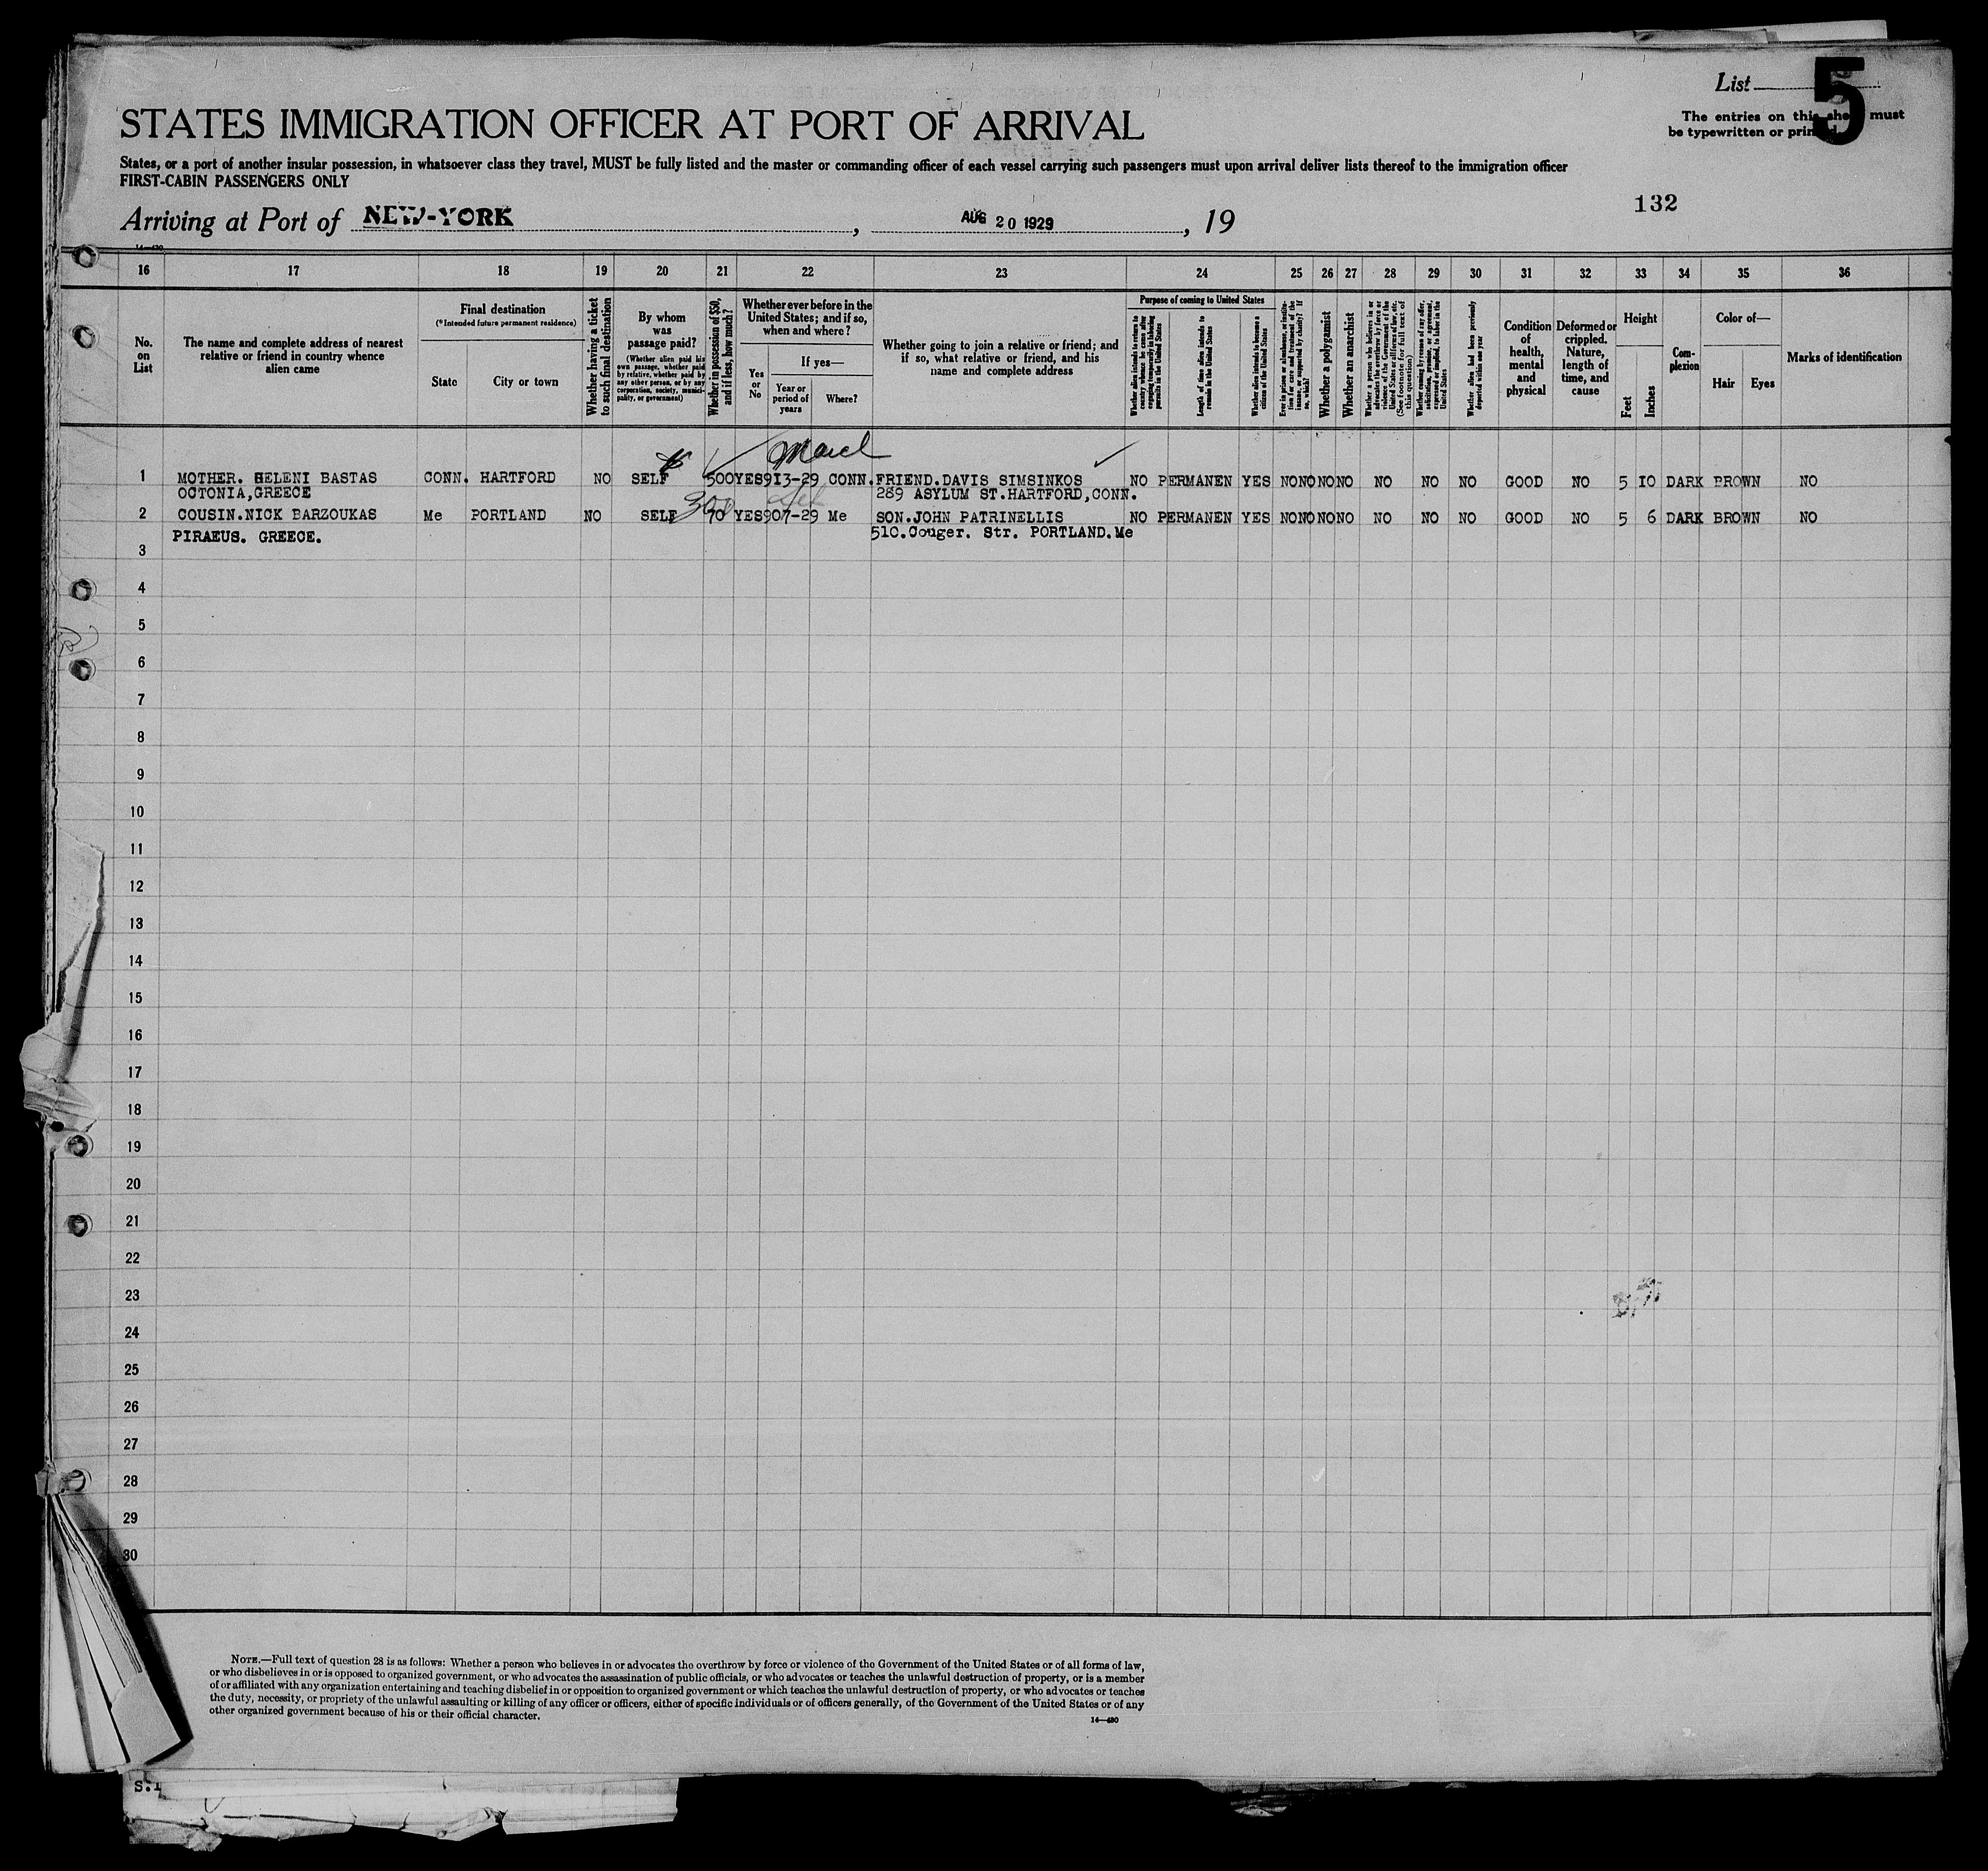 List 5
STATES IMMIGRATION OFFICER AT PORT OF ARRIVAL
The entries on this sheet must
be typewritten or printed
States, or a port of another insular possession, in whatsoever class they travel, MUST be fully listed and the master or commanding officer of each vessel carrying such passengers must upon arrival deliver lists thereof to the immigration officer
FIRST-CABIN PASSENGERS ONLY
132
Arriving at Port of NEW-YORK, AUG 20 1929, 19
14—430
16 17 18 19 20 21 22 23 24 25 26 27 28 29 30 31 32 33 34 35 36
No. on List
The name and complete address of nearest relative or friend in country whence alien came
Final destination
(*Intended future permanent residence)
State
City or town
Whether having a ticket to such final destination
By whom was passage paid?
(Whether alien paid his own passage, whether paid by relative, whether paid by any other person, or by any corporation, society, municipality, or government)
Whether in possession of $50, and if less, how much?
Whether ever before in the United States; and if so, when and where?
Yes or No
If yes—
Year or period of years
Where?
Whether going to join a relative or friend; and if so, what relative or friend, and his name and complete address
Purpose of coming to United States
Whether alien intends to return to country whence he came after engaging temporarily in laboring pursuits in the United States
Length of time alien intends to remain in the United States
Whether alien intends to become a citizen of the United States
Ever in prison or almshouse, or institution for care and treatment of the insane, or supported by charity? If so, which?
Whether a polygamist
Whether an anarchist
Whether a person who believes in or advocates the overthrow by force or violence of the Government of the United States or all forms of law, etc. (See footnote for full text of this question)
Whether coming by reason of any offer, solicitation, promise, or agreement, expressed or implied, to labor in the United States
Whether alien had been previously deported within one year
Condition of health, mental and physical
Deformed or crippled. Nature, length of time, and cause
Height
Feet
Inches
Complexion
Color of—
Hair
Eyes
Marks of identification
1 MOTHER. HELENI BASTAS CONN. HARTFORD NO SELF 500 YES 913-29 CONN. FRIEND.DAVIS SIMSINKOS NO PERMANEN YES NO NO NO NO NO NO NO GOOD NO 5 10 DARK BROWN NO
OCTONIA,GREECE 289 ASYLUM ST.HARTFORD,CONN.
2 COUSIN.NICK BARZOUKAS Me PORTLAND NO SELF 300 70 YES 907-29 Me SON.JOHN PATRINELLIS NO PERMANEN YES NO NO NO NO NO NO NO GOOD NO 5 6 DARK BROWN NO
PIRAEUS. GREECE. 51C.Couger. Str. PORTLAND.Me
3
4
5
6
7
8
9
10
11
12
13
14
15
16
17
18
19
20
21
22
23
24
25
26
27
28
29
30
NOTE.—Full text of question 28 is as follows: Whether a person who believes in or advocates the overthrow by force or violence of the Government of the United States or of all forms of law,
or who disbelieves in or is opposed to organized government, or who advocates the assassination of public officials, or who advocates or teaches the unlawful destruction of property, or is a member
of or affiliated with any organization entertaining and teaching disbelief in or opposition to organized government or which teaches the unlawful destruction of property, or who advocates or teaches
the duty, necessity, or propriety of the unlawful assaulting or killing of any officer or officers, either of specific individuals or of officers generally, of the Government of the United States or of any
other organized government because of his or their official character.
14—430